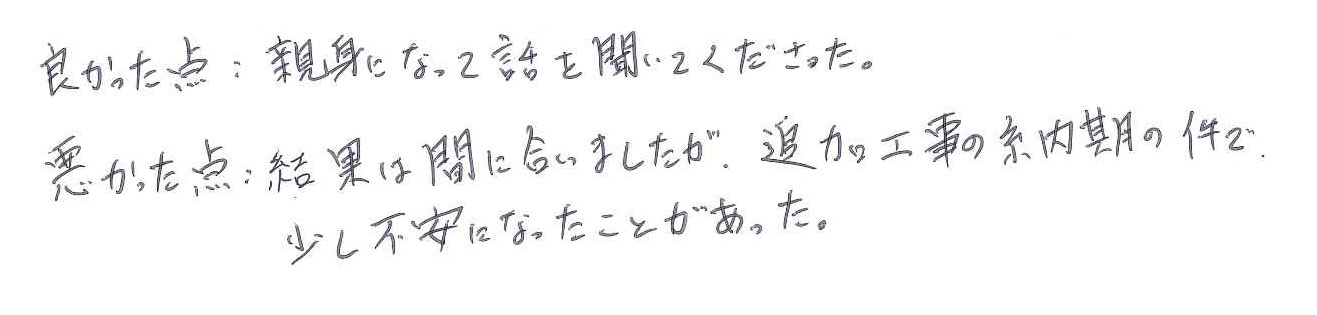 良かった点：親身になって話を聞いてくださった。
悪かった点：結果は間に合いましたが、追加工事の納期の件で、
少し不安になったことがあった。